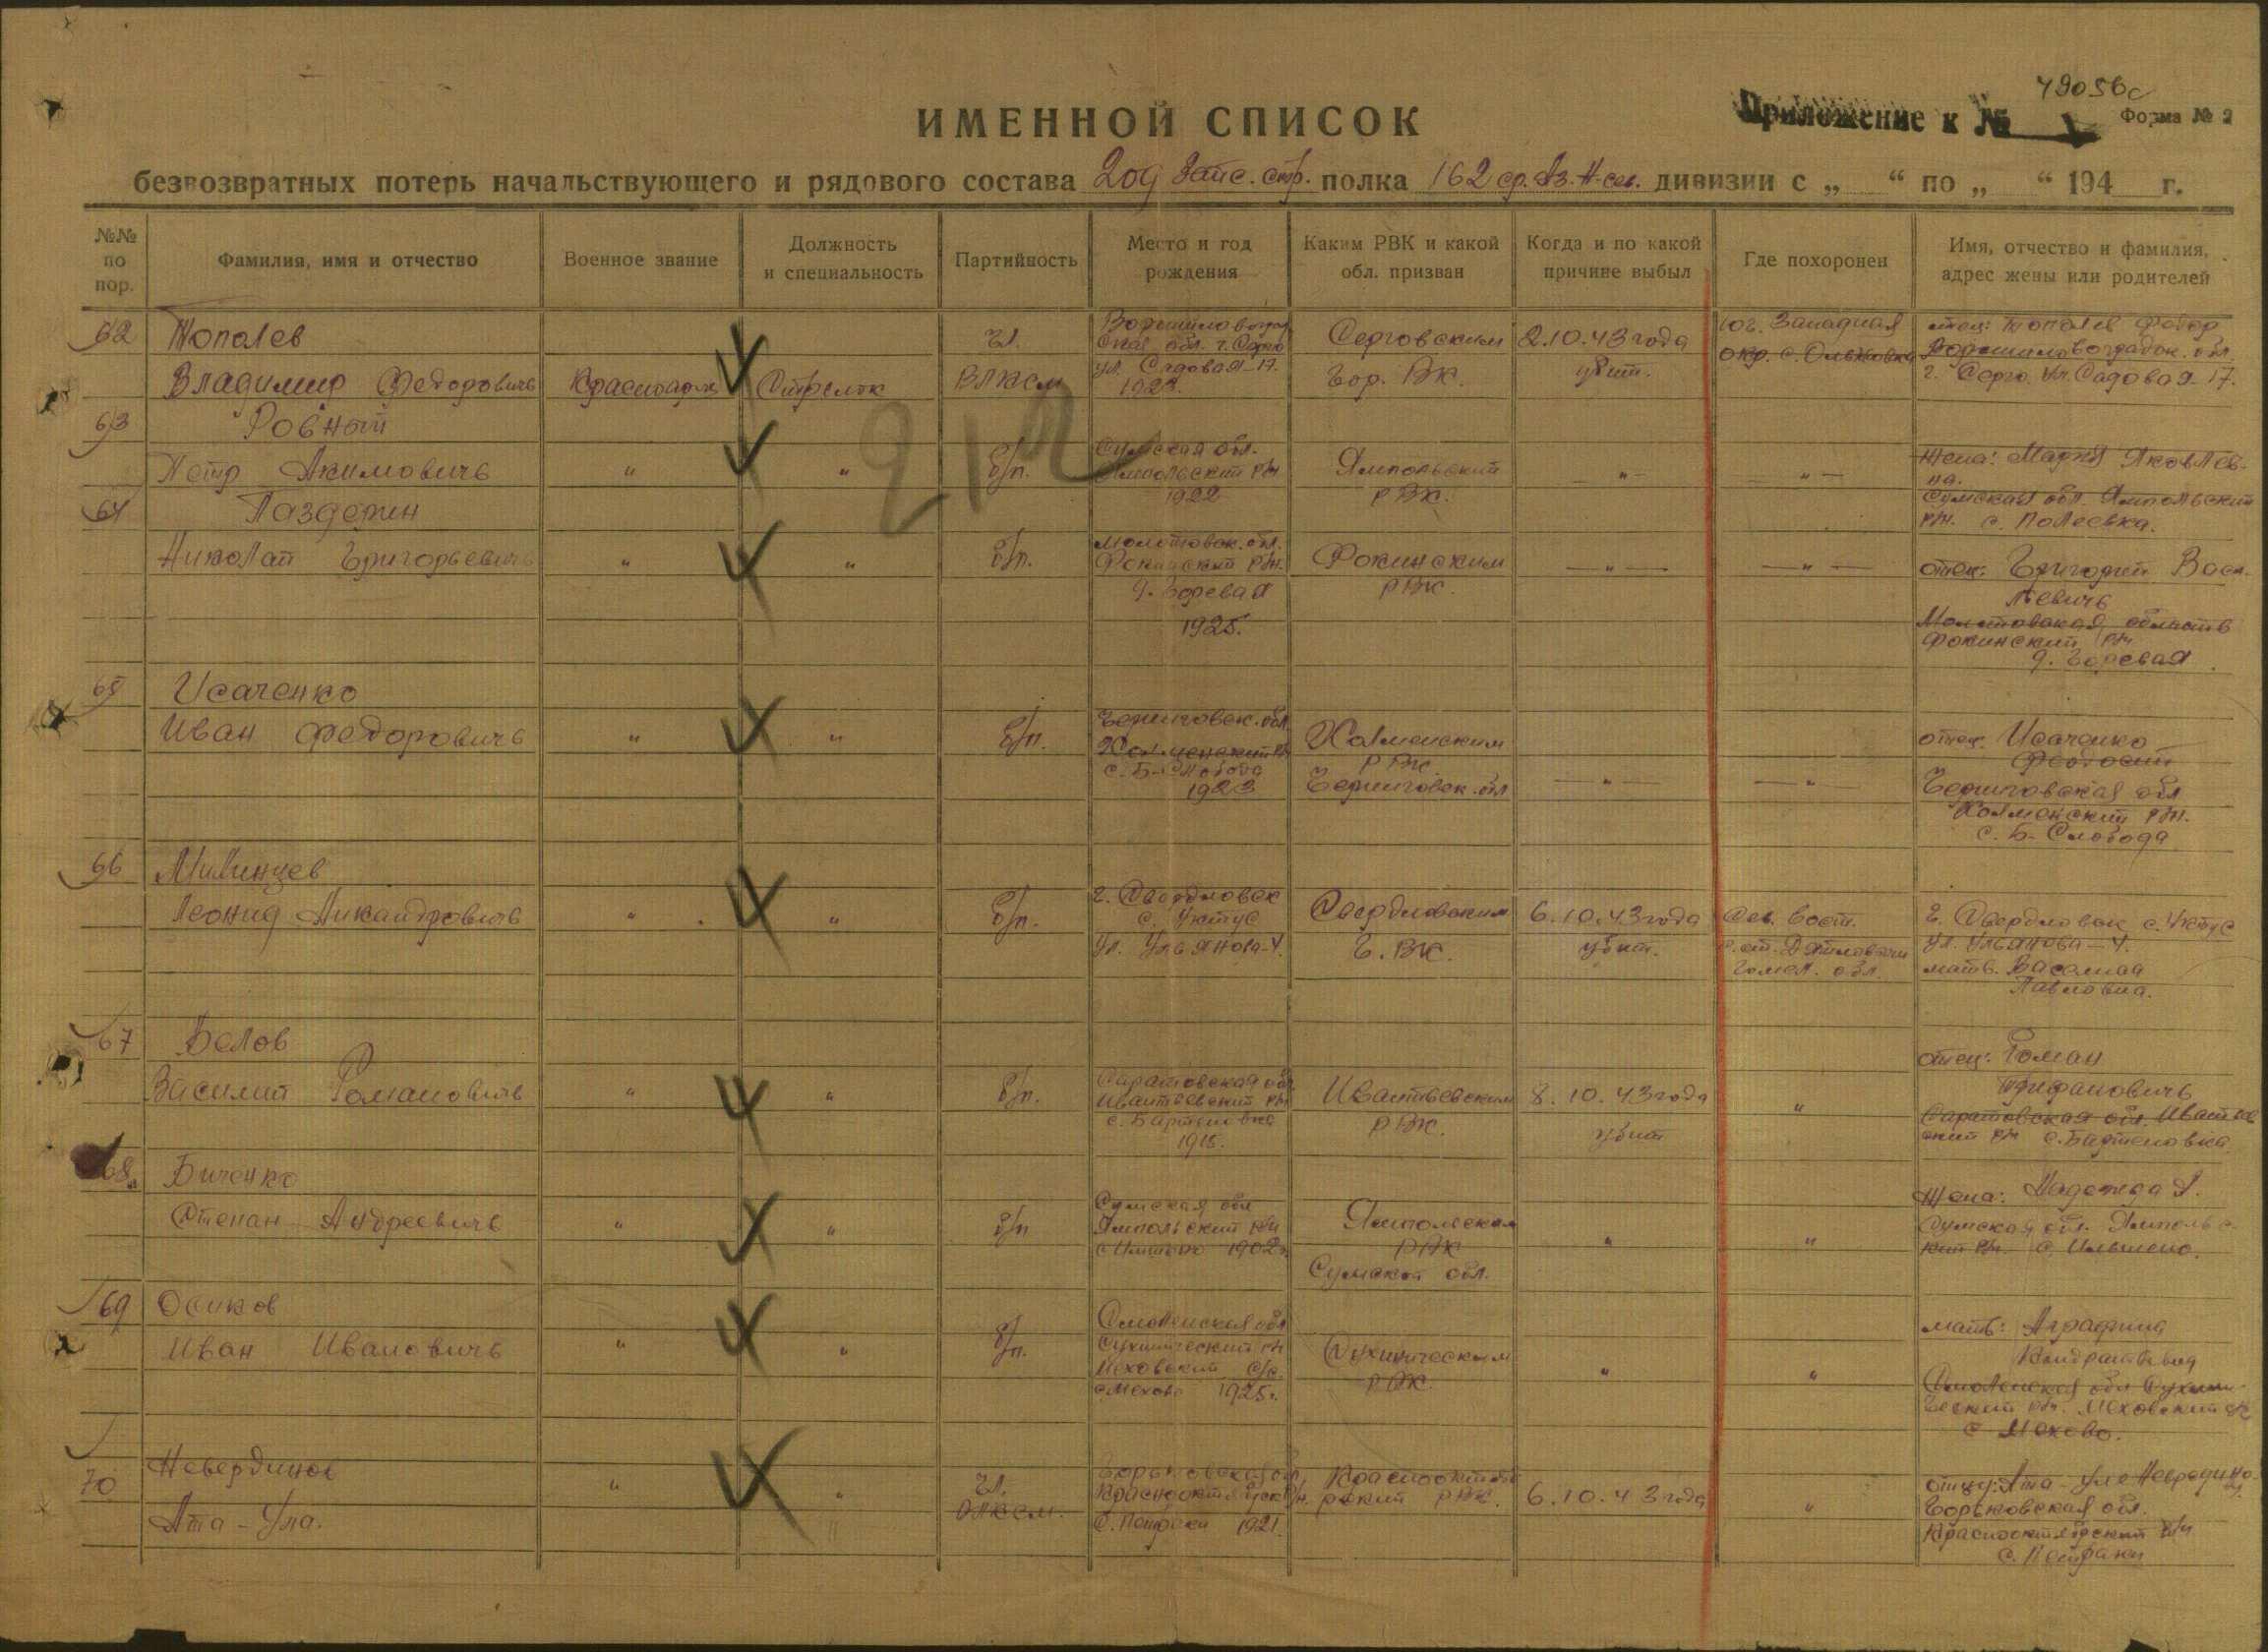 79056с
ИМЕННОЙ СПИСОК
Приложение к №
Форма № 2
безвозвратных потерь начальствующего и рядового состава 209 Запс. стр. полка 162 ср. Аз. Н-сев. дивизии с „ “ по „ “ 194 г.
№№ по пор.
Фамилия, имя и отчество
Военное звание
Должность и специальность
Партийность
Место и год рождения
Каким РВК и какой обл. призван
Когда и по какой причине выбыл
Где похоронен
Имя, отчество и фамилия, адрес жены или родителей
212
62
Тополев
Владимир Федоровичь
Красноарм
Стрелок
Чл.
ВЛКСМ
Ворошиловоград
ская обл. г. Серго
ул. Садовая-17.
Серговским
Гор. ВК.
2.10.43 года
убит.
Юг. Западная
окр. с.
отец: Тополев Федор
Ворошиловоградск. обл.
г. Серго ул. Садовая-17.
63
Ровный
Петр Акимовичь
"
"
б/п.
Сумская обл.
Ямпольский р/н
1922
Ямпольский
РВК.
— " —
— " —
Жена: Мария Яковлев-
на.
Сумская обл Ямпольский
р/н. с. Полеевка.
64
Паздерин
Николай Григорьевичь
"
"
б/п.
Молотовск. обл.
Фокинский р/н.
д. Горевая
1925.
Фокинским
РВК.
— " —
— " —
отец: Григорий Васи-
льевичь
Молотовская область
Фокинский р/н
д. Горевая
65
Исаченко
Иван Федоровичь
"
"
б/п.
Черниговск. обл
Холменский р/н
с. Б-Слобода
1923
Холменским
РВК
Черниговск. обл
— " —
— " —
отец. Исаченко
Черниговская обл
Холменский р/н.
с. Б- Слобода
66
Милинцев
Леонид Никандровичь
"
"
б/п.
г. Свердловск
с. Уктус
ул. Ульянова-4.
Свердловским
Г. ВК.
6.10.43 года
убит.
Сев. Вост.
Гомел. обл.
г. Свердловск с. Уктус
ул. Ульянова-4.
мать. Васелиса
Павловна.
67
Белов
Василий Романовичь
"
"
б/п.
Саратовская обл
Ивантеевский р/н
с. Бартеневка
Ивантеевским
РВК.
8.10.43 года
убит
"
отец: Роман
Трифановичь
Саратовская обл. Ивантеев
ский р/н с. Бартеновка.
68.
Биченко
Степан Андреевичь
"
"
б/п
Сумская обл
Ямпольский р/н
1902
Ямпольским
РВК
Сумской обл.
"
"
Жена: Надежда Я.
Сумская обл. Ямпольс-
кий р/н. с.
69
Осиков
Иван Ивановичь
"
"
б/п.
Смоленская обл
Сухинический р/н
Меховский с/с.
с Мехово 1925г.
Сухиническим
РВК.
"
"
мать: Аграфина
Кондратьевна
Смоленская обл Сухини-
ческий р/н. Меховский с/с
с Мехово.
70
Невердинов
Ата-Ула.
"
"
Чл.
ВЛКСМ.
Горьковская обл
Краснооктябрск р/н.
с. Пецраки 1921.
Краснооктяб
рский РВК.
6.10.43 года
"
отец: Ата-Ула
Горьковская обл.
Краснооктябрский р/н
с. Пецраки